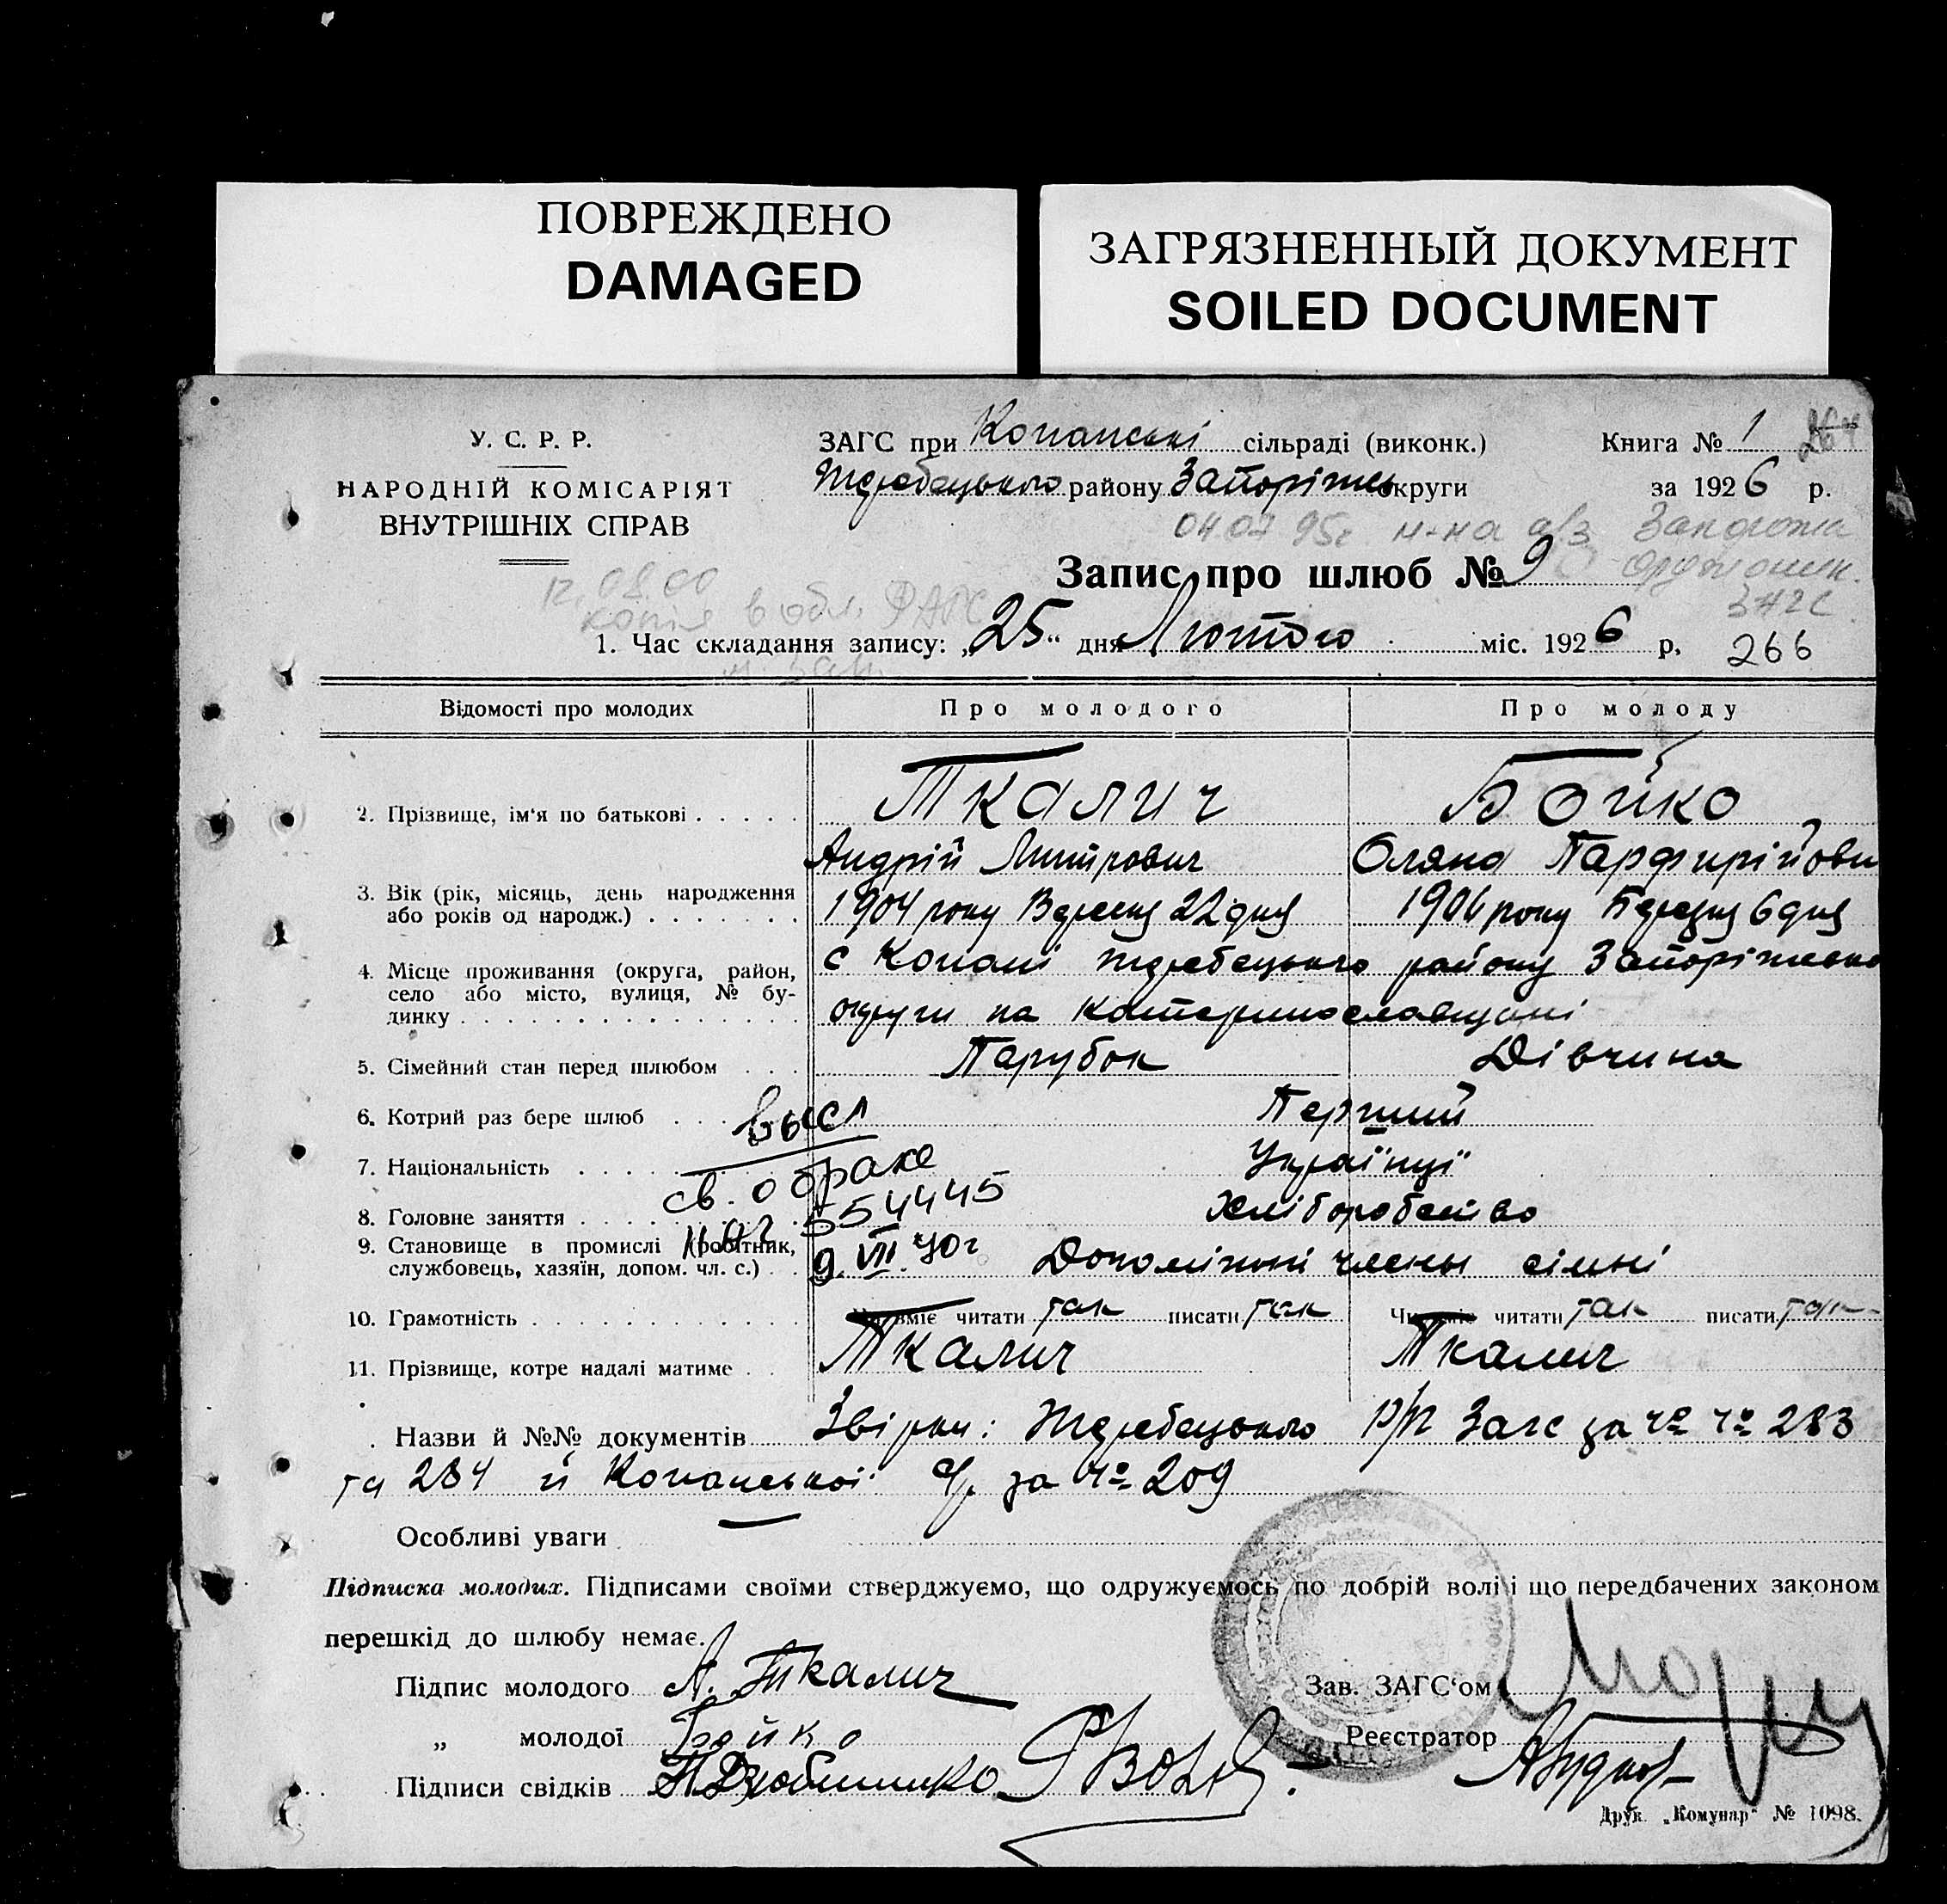 ПОВРЕЖДЕНО
DAMAGED
ЗАГРЯЗНЕННЫЙ ДОКУМЕНТ
SOILED DOCUMENT
У. С. Р. Р.
НАРОДНІЙ КОМІСАРІЯТ
ВНУТРІШНІХ СПРАВ
ЗАГС при Копанській сільраді (виконк.) Книга № 1
Жеребецького району Запоріжсь округи за 1926 р.
04.07 95г
Запис про шлюб № 9
12.08.00
копія в обл. РАГС
ЗАГС
1. Час складання запису: „25“ дня Лютого міс. 1926 р.
266
Відомості про молодих Про молодого Про молоду
2. Прізвище, ім'я по батькові Ткалич Бойко
Андрій Митрович Оляна Парфирійовн
3. Вік (рік, місяць, день народження
або років од народж.) 1904 року Вересня 22 дня 1906 року Березня 6 дня
4. Місце проживання (округа, район,
село або місто, вулиця, № бу-
динку
с Копані Жеребецького району Запоріжсько
округи на Катеринославщині
5. Сімейний стан перед шлюбом Парубок Дівчина
6. Котрий раз бере шлюб Перший
высл
7. Національність Українці
св. о браке
8. Головне заняття Хліборобство
554445
9. Становище в промислі (робітник,
службовець, хазяїн, допом. чл. с.) Допоміжні члены сімьї
9. VII. 40г
10. Грамотність вміє читати так писати так читати так писати так
11. Прізвище, котре надалі матиме Ткалич Ткалич
Назви й №№ документів Звірки: Жеребецького р/п Загс за чо чо 283
та 284 й Копанської за чо 209
Особливі уваги —
Підписка молодих. Підписами своїми стверджуємо, що одружуємось по добрій волі і що передбачених законом
перешкід до шлюбу немає.
Підпис молодого А. Ткалич Зав. ЗАГС‘ом
„ молодої Бойко Реєстратор
Підписи свідків
Друк. „Комунар“ № 1098.